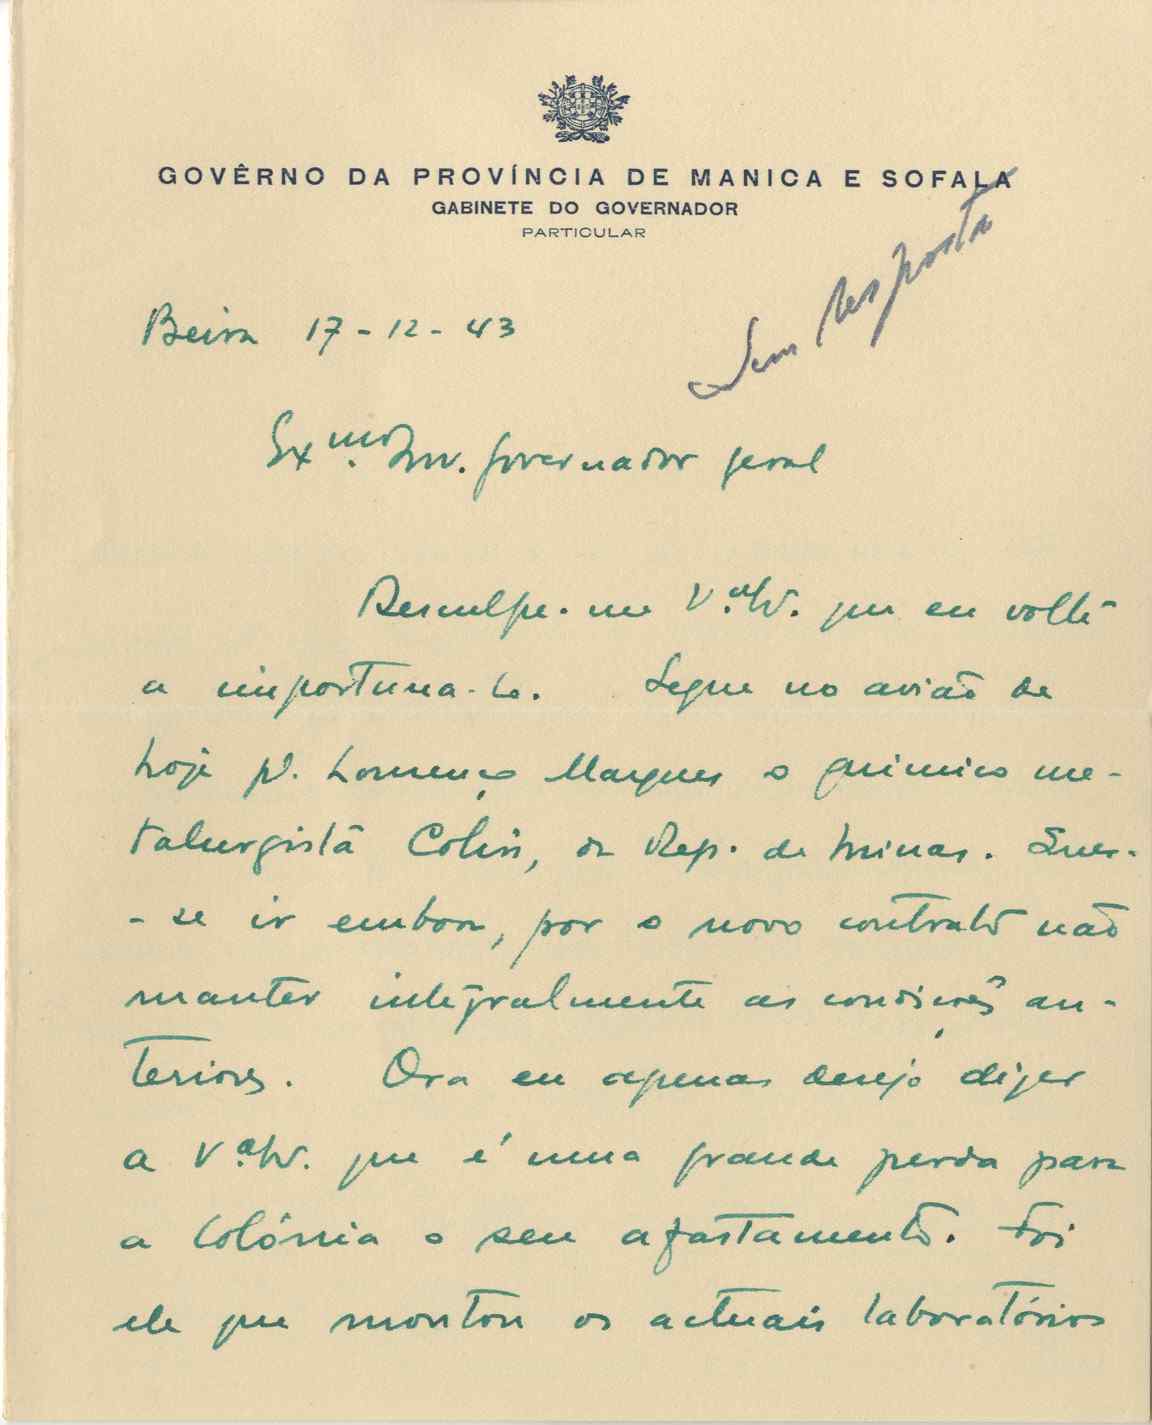 GOVÊRNO DA PROVÍNCIA DE MANICA E SOFALA
GABINETE DO GOVERNADOR
PARTICULAR
Sem resposta
Beira 17-12-43
Exmo. Snr. Governador geral
Desculpe-me V.ª Ex. que eu volte
a importuna-lo. Segue no avião de
hoje p. Lourenço Marques o quimico me-
talurgista Colin, da Rep. de Minas. Quer-
-se ir embora, por o novo contrato não
manter integralmente as condições an-
teriores. Ora eu apenas desejo dizer
a V.ª Ex. que é uma grande perda para
a Colónia o seu afastamento. Foi
ele que montou os actuais laboratórios